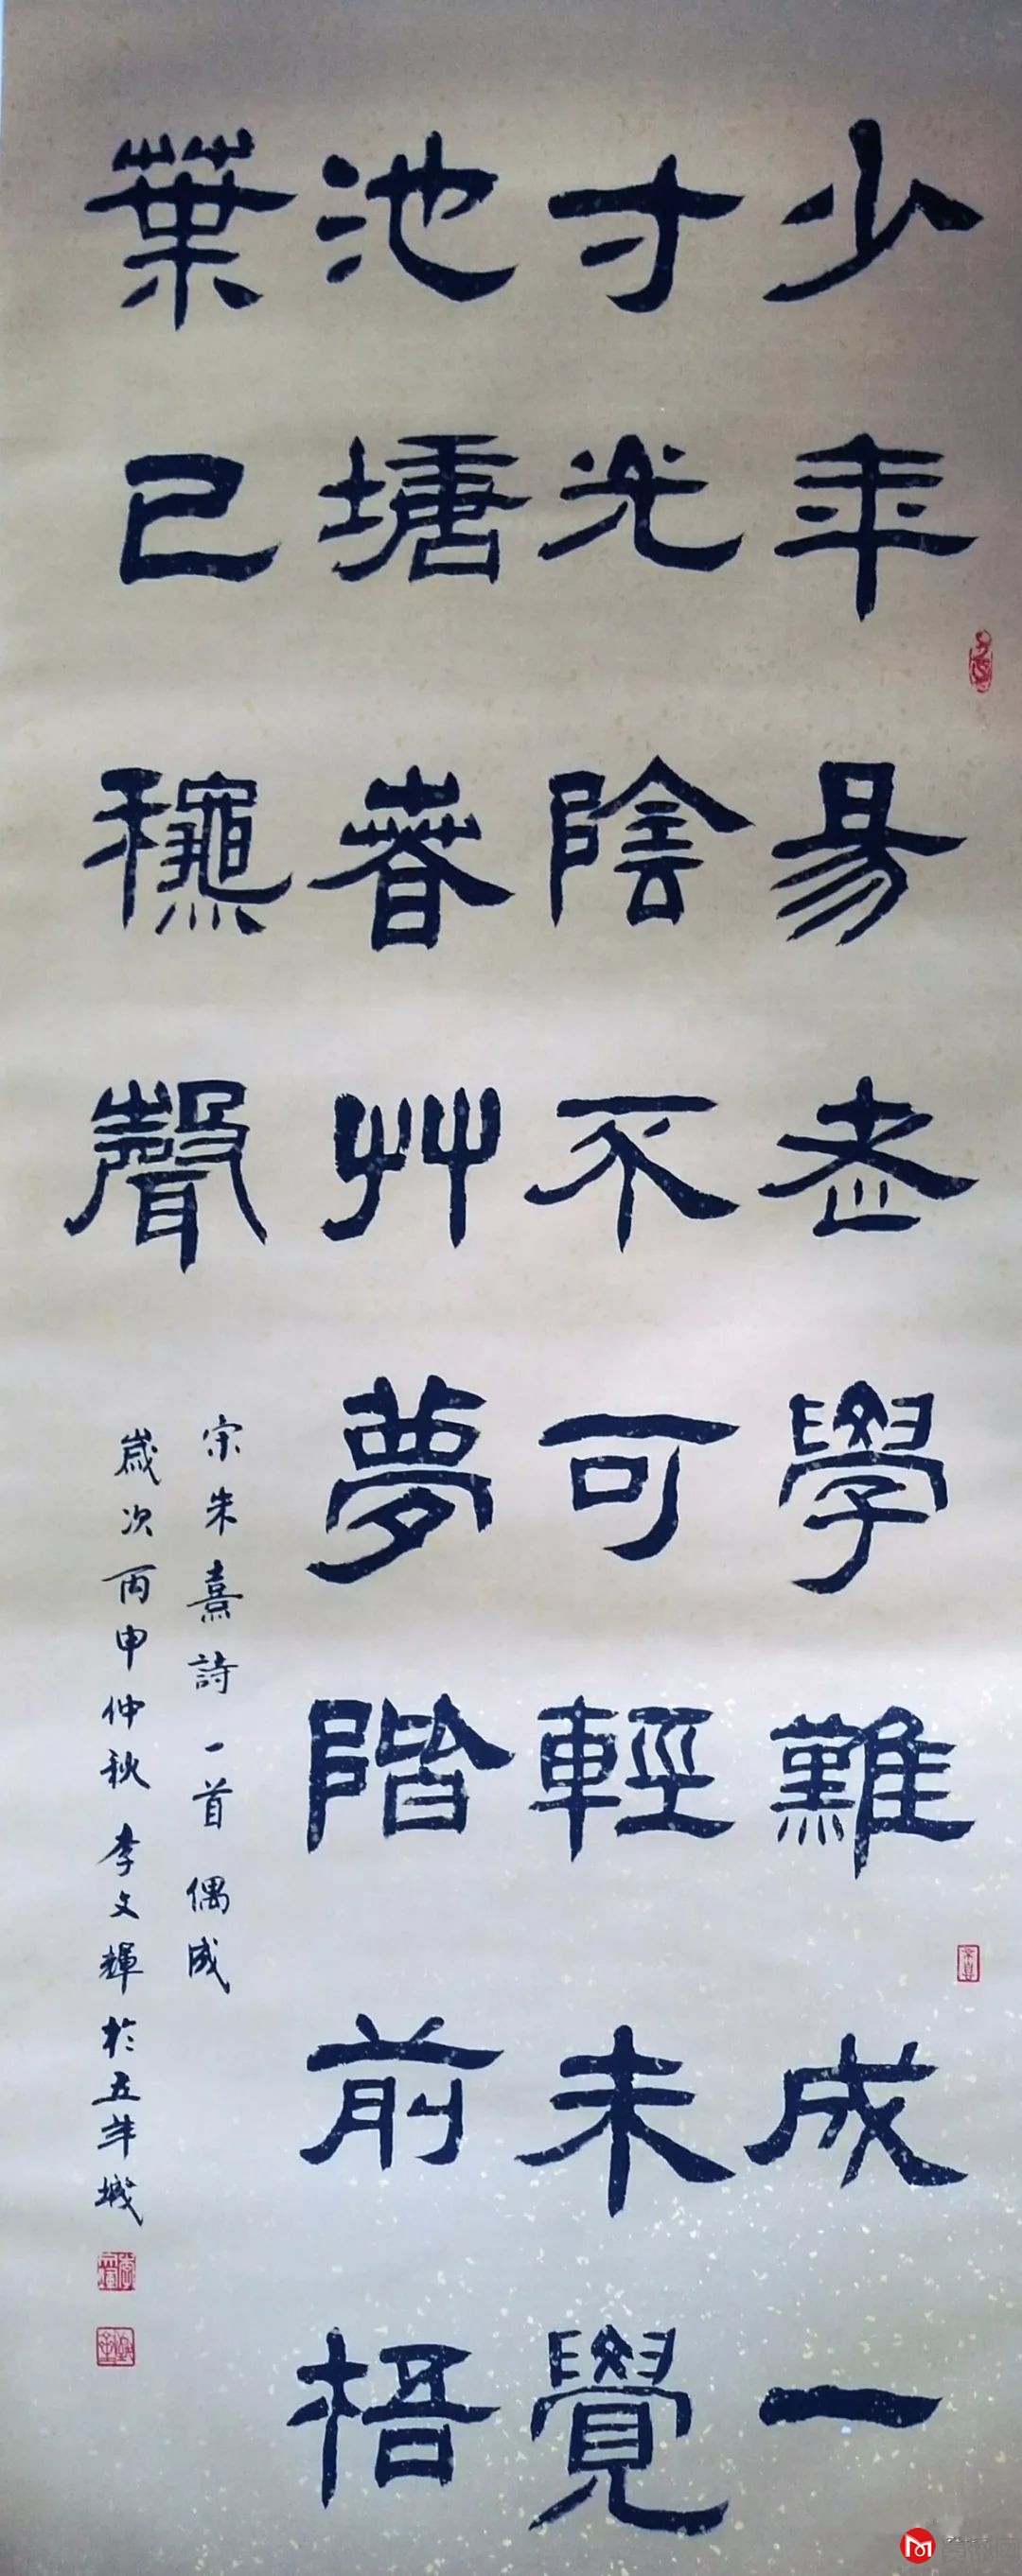 少年易老學難成一
寸光陰不可輕未覺
池塘春艸夢階前梧
葉已穐聲
宋朱熹詩一首偶成
歲次丙申仲秋李文輝於五羊城